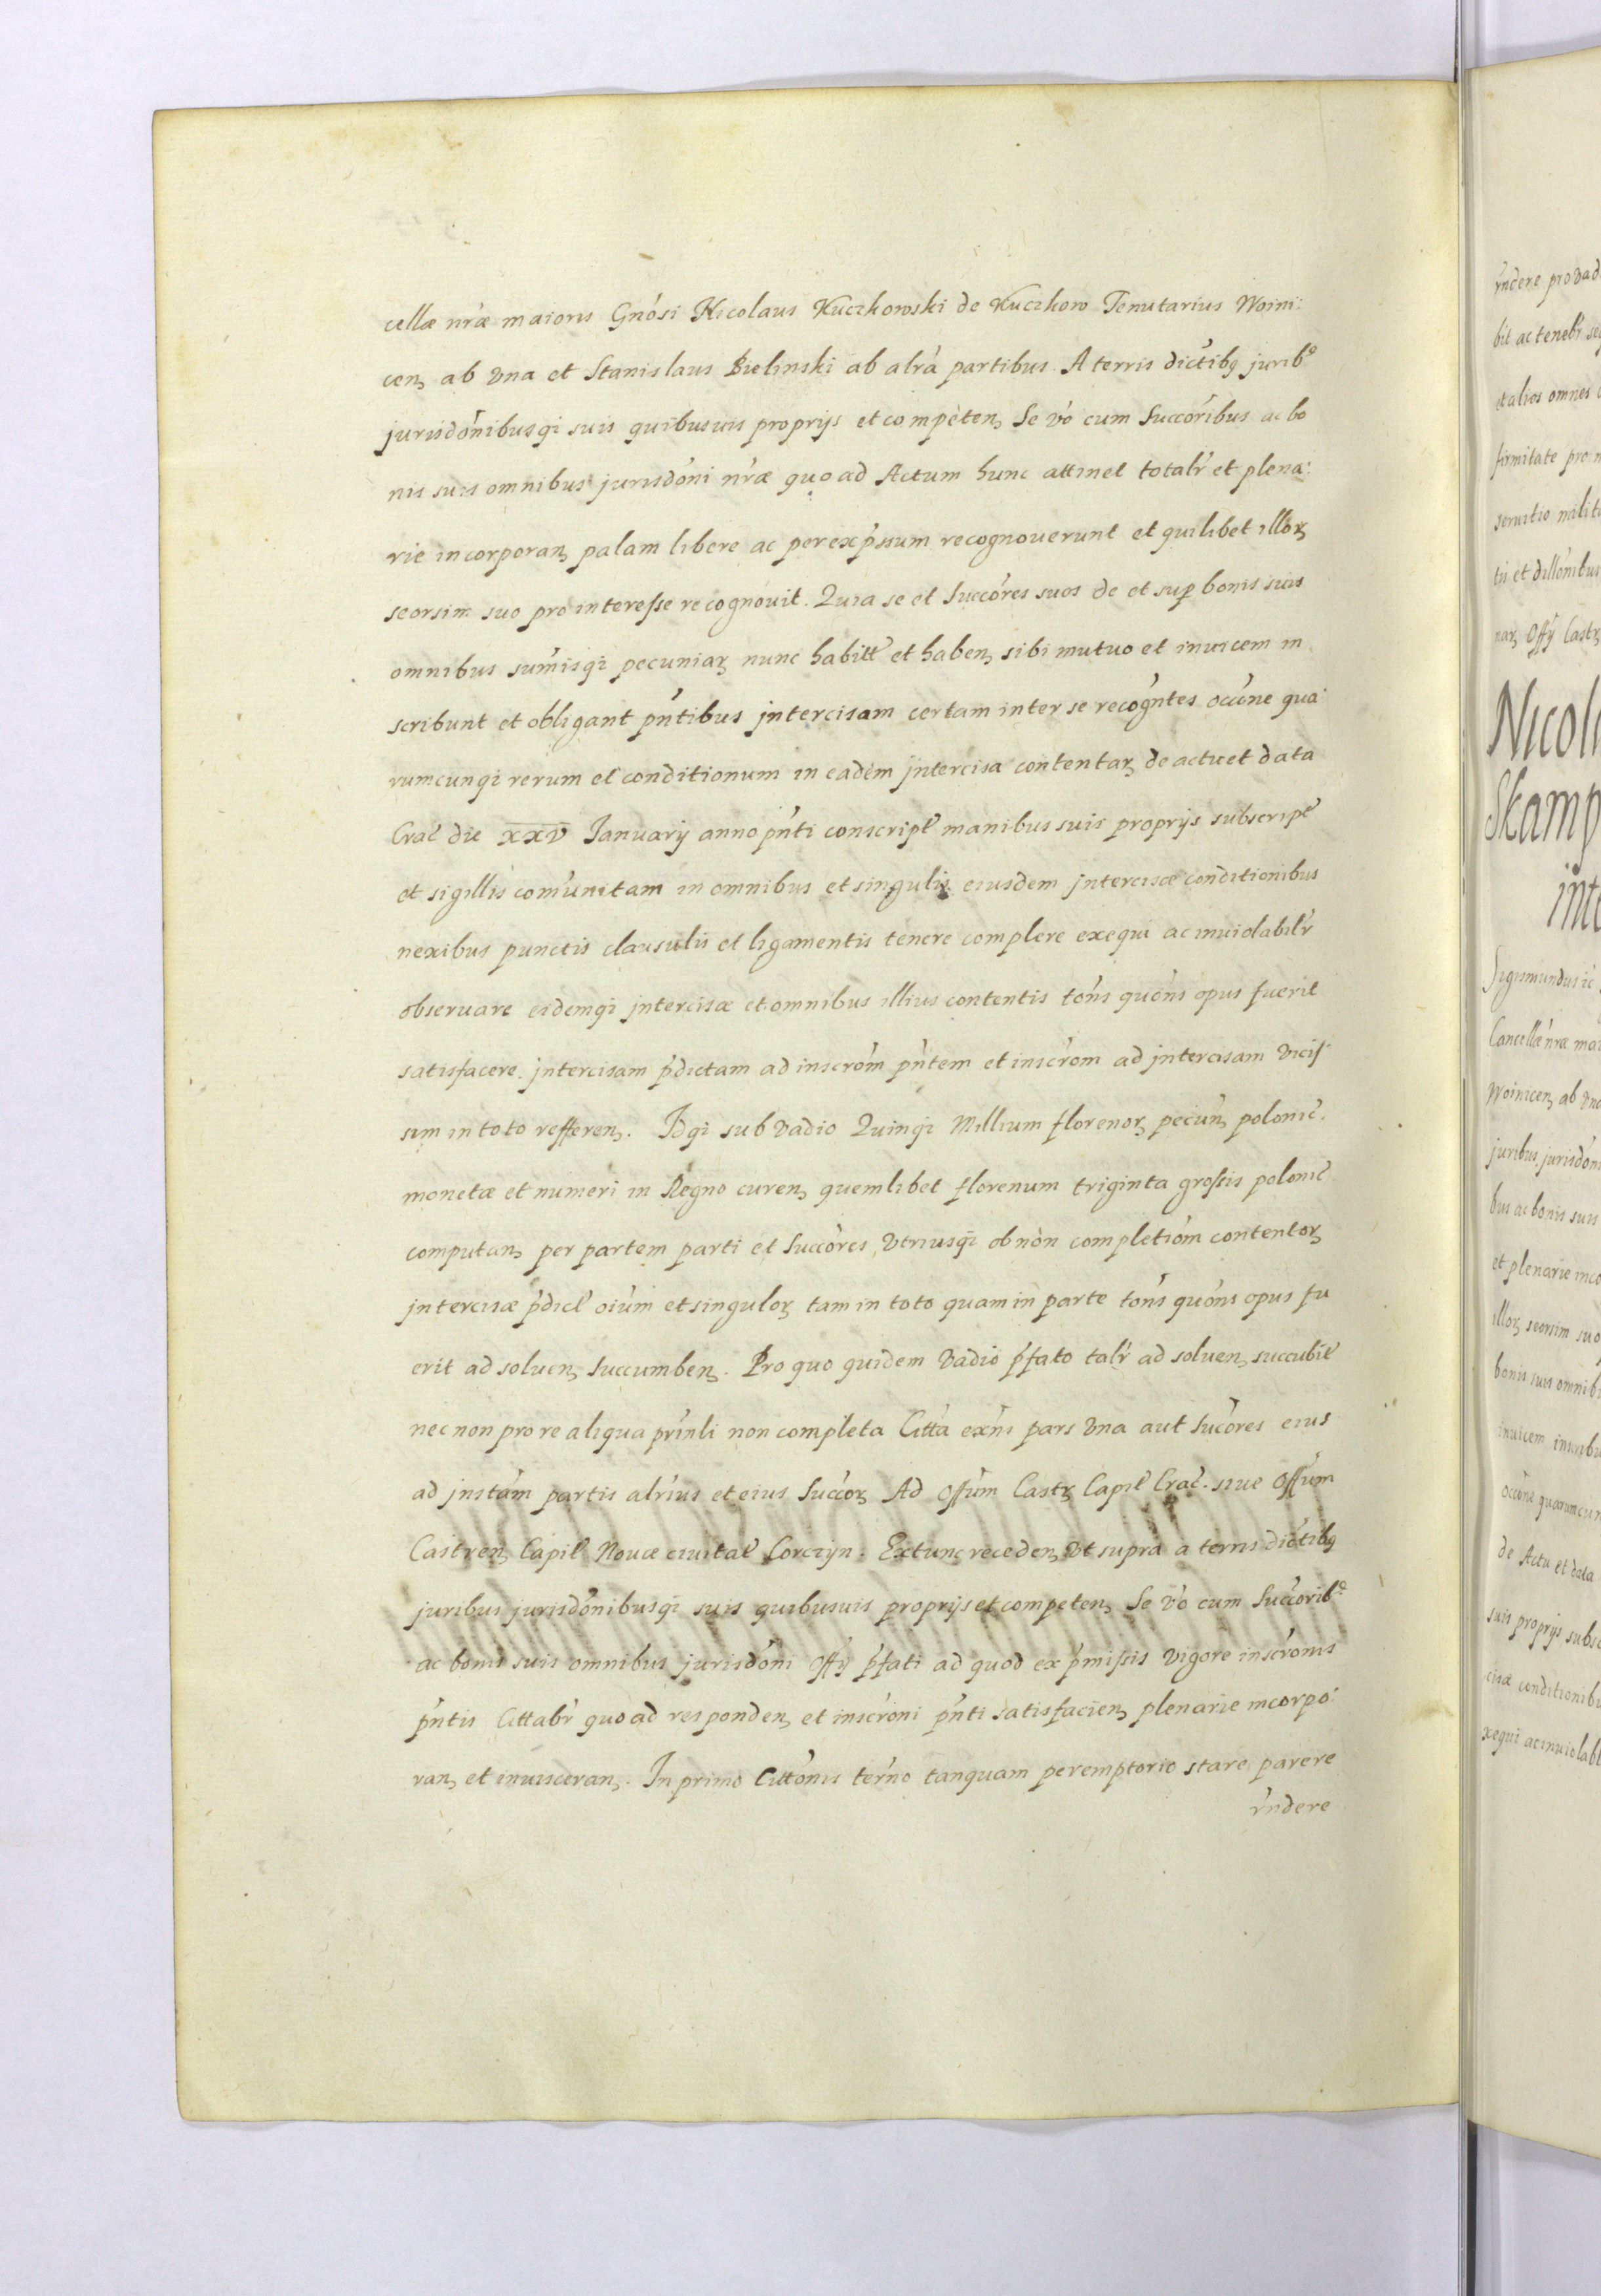 cellæ nr̃æ maioris Gnósi Nicolaus Kuczkowski de Kuczkow Tenutarius Woini:
cen̄ ab vna et Stanislaus Bielinski ab alrá partibus. A terris dictibꝫ jurib9
jurisdónibusqȝ suis quibusuis proprijs et compèten̄ Se vó cum Succóribus ac bo
nis suis omnibus jurisdóni nr̃æ quo ad Actum hunc attinet totalr̃ et plena:
rie incorporan̄ palam libere ac per exp̃ssum recognouerunt et quilibet illoꝝ
seorsim suo pro interesse recognouit. Quia se et Succóres suos de et sup̱ bonis suis
omnibus sum̃isqȝ pecuniaꝝ nunc habitt̃ et haben̄ sibi mutuo et inuicem in
scribunt et obligant pñtibus jntercisam certam inter se recogñtes occõne qua
rumcunqȝ rerum et conditionum in eadem jntercisa contentaꝝ de actu et data
Crac̃ die xxv Ianuarij anno pñti conscript̃ manibus suis proprijs subscript̃
et sigillis com̃unitam in omnibus et singulis eiusdem jntercisæ conditionibus
nexibus punctis clausulis et ligamentis tenere complere exequi ac inuiolabilr̃
obseruare eidemqȝ jntercisæ et omnibus illius contentis tóns quóns opus fuerit
satisfacere. jntercisam p̃dictam ad inscróm pñtem et inscróm ad jntercisam vicis
sim in toto refferen̄. Idqȝ sub vadio Quinqȝ Millium florenoꝝ pecun̄ polonic̃.
monetæ et numeri in Regno curen̄ quemlibet florenum triginta grossis polonic̃.
computan̄ per partem parti et Succóres vtriusqȝ ob nòn completióm contentoꝝ
jntercisæ p̃dict̃ oium et singuloꝝ tam in toto quam in parte tóns quóns opus fu
erit ad soluen̄ succumben̄. Pro quo quidem vadio p̃fato talr̃ ad soluen̄ succubit̃
nec non pro re aliqua prinli non completa Citta exñs pars vna aut Sucóres eius
ad jnstám partis alrius et eius Succoꝝ Ad Offum Castꝝ Capit̃ Crac̃. siue Offum
Castren̄ Capit̃ Nouæ ciuitat̃ Corczyn. Extunc receden̄ vt supra a terris dictibꝫ
juribus jurisdónibusqȝ suis quibusuis proprijs et competen̄ Se vó cum Succorib9
ac bonis suis omnibus jurisdóni Offij p̃fati ad quod ex p̃missis vigore inscrónis
pñtis Cittabr̃ quo ad responden̄ et inscróni pñti satisfacien̄ plenarie incorpo:
ran̄ et inuisceran̄. In primo Cittónis terno tanquam peremptorio stare parere
rñdere